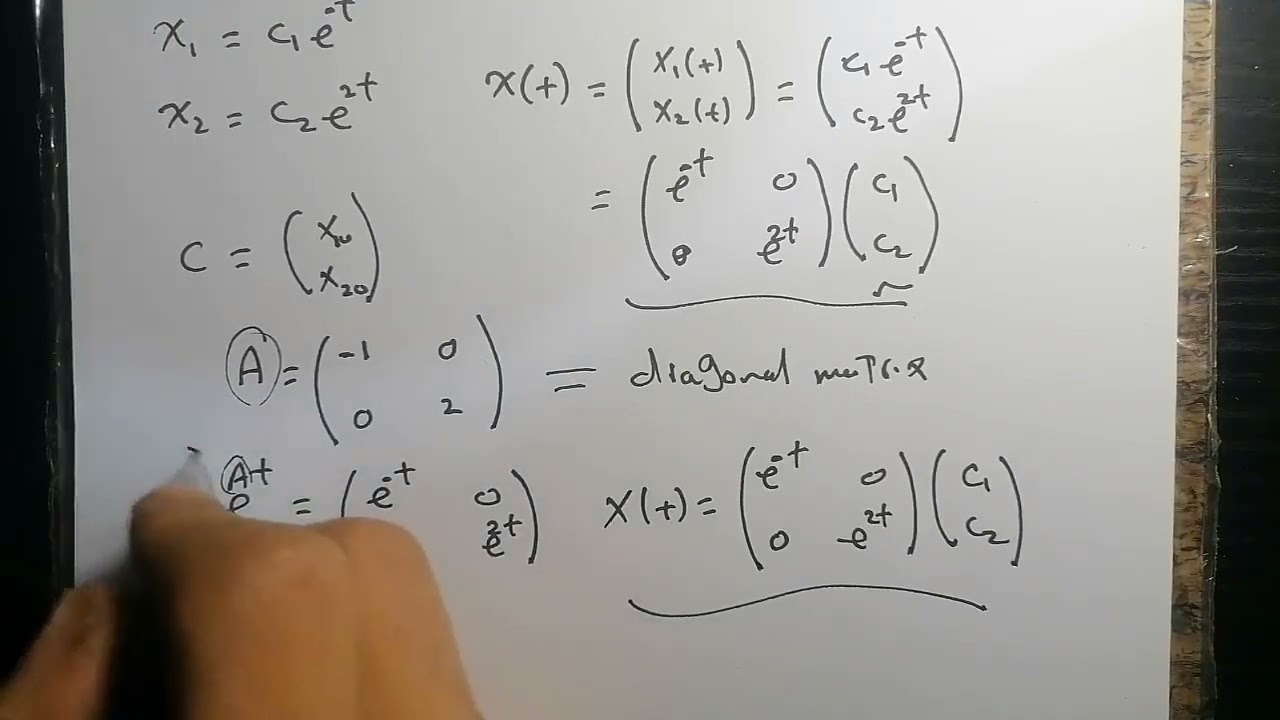 x₁ = c₁ e^-t
x₂ = c₂ e^2t
x(t) = ( x₁(t) x₂(t) ) = ( c₁ e^-t c₂ e^2t )
= ( e^-t 0 0 e^2t ) ( c₁ c₂ )
C = ( x₁₀ x₂₀ )
A = ( -1 0 0 2 ) = diagonal matrix
e^At = ( e^-t 0 e^2t )
x(t) = ( e^-t 0 0 e^2t ) ( c₁ c₂ )